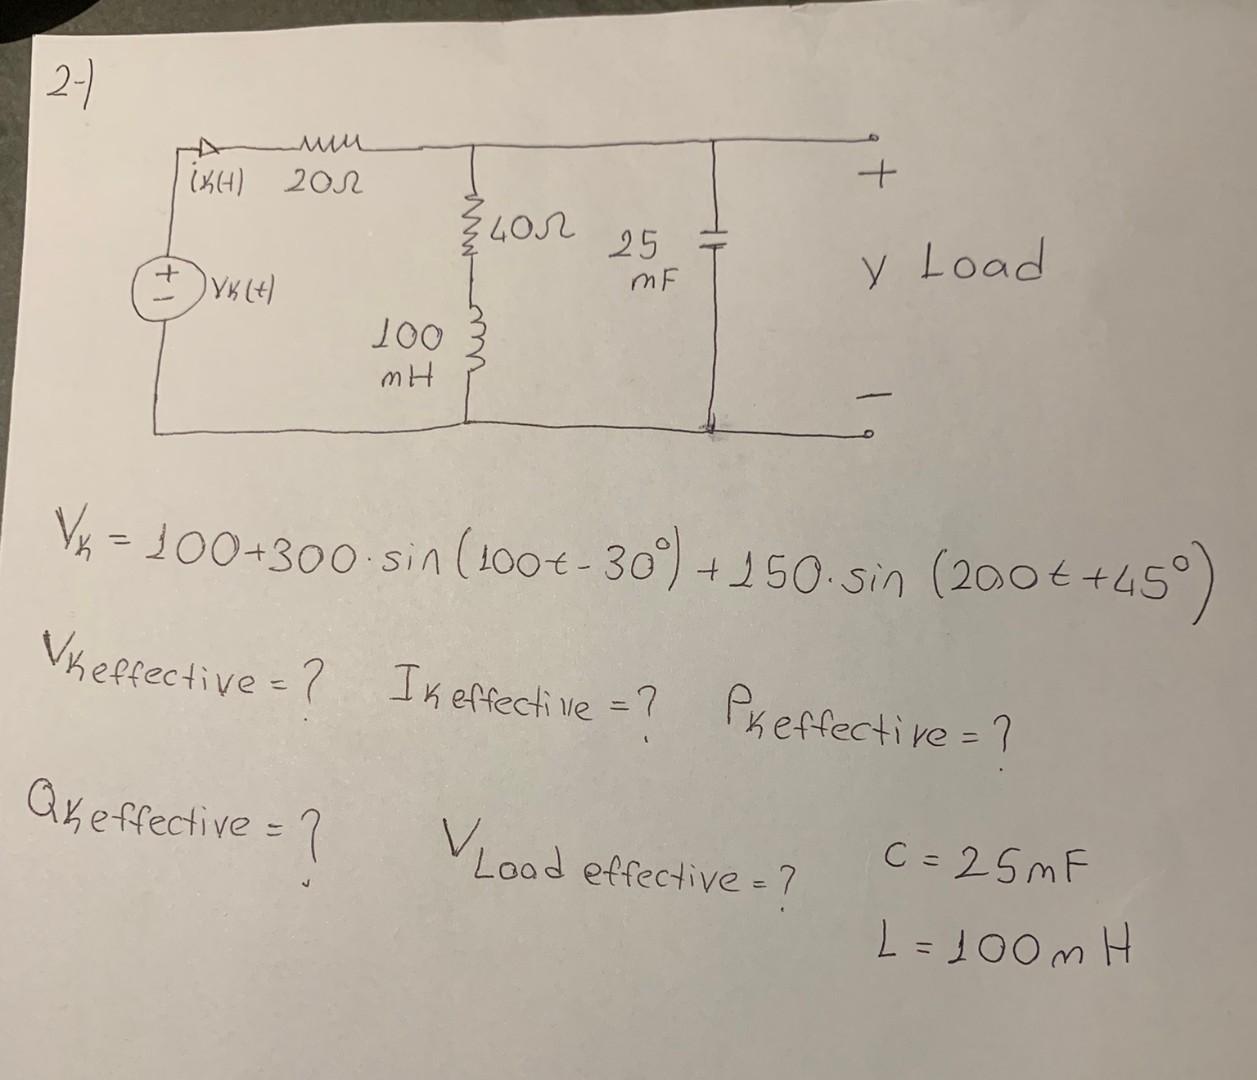 2-)
iK(t) 20Ω
40Ω
25
mF
+
V Load
+
-
VK(t)
100
mH
-
VK = 100+300·sin(100t-30°)+150·sin(200t+45°)
VKeffective=? IKeffective=? PKeffective=?
QKeffective=?
VLoad effective=?
C=25mF
L=100mH